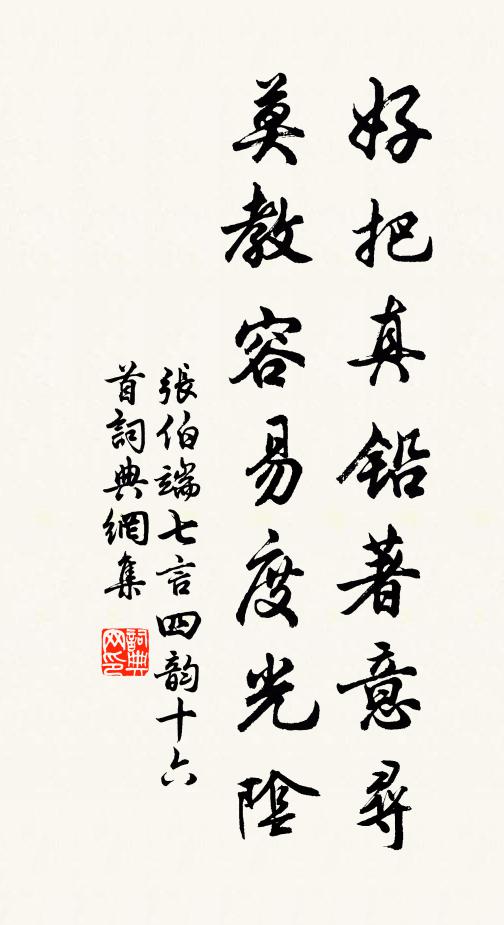 好把真鉛著意尋
莫教容易度光陰
張伯端七言四韵十六
首詞典網集
詞典
网印